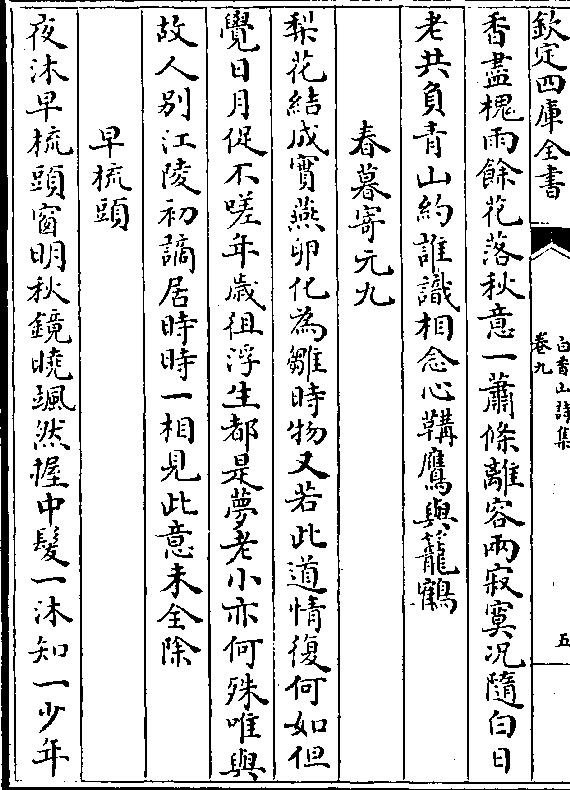 欽定四庫全書
白香山詩集
卷九
五
香盡槐雨餘花落秋意一蕭條離容兩寂寞况隨白日
老共負青山約誰識相念心鞲鷹與籠鶴
春暮寄元九
梨花結成實燕卵化為雛時物又若此道情復何如但
覺日月促不嗟年歲徂浮生都是夢老小亦何殊唯與
故人别江陵初謫居時時一相見此意未全除
早梳頭
夜沐早梳頭窗明秋鏡曉颯然握中髮一沐知一少年